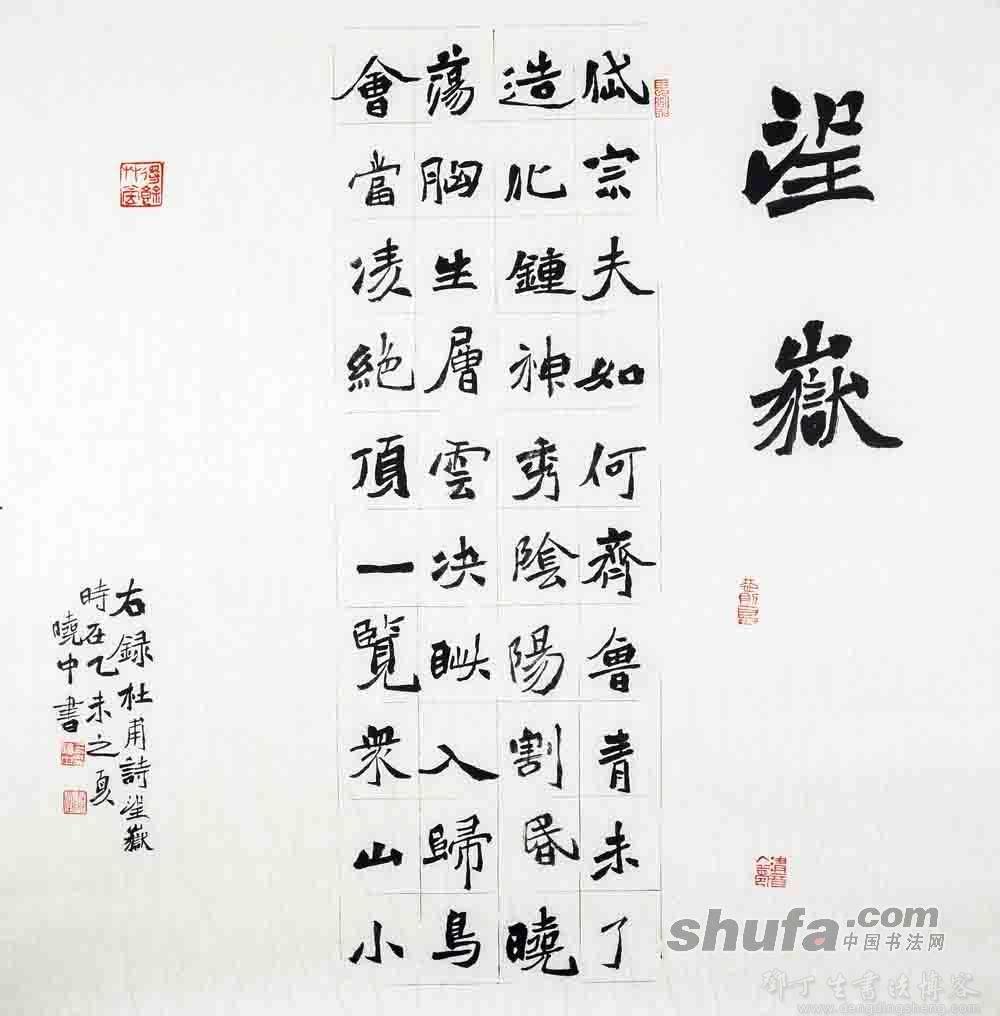 望嶽
岱宗夫如何齊魯青未了
造化鍾神秀陰陽割昏曉
蕩胸生層雲决眦入歸鳥
會當凌絕頂一覽衆山小
右録杜甫詩望嶽
時在乙未之夏
曉中書
shufa.com
中国书法网
鄧丁生書法博客
www.dengdingsheng.com